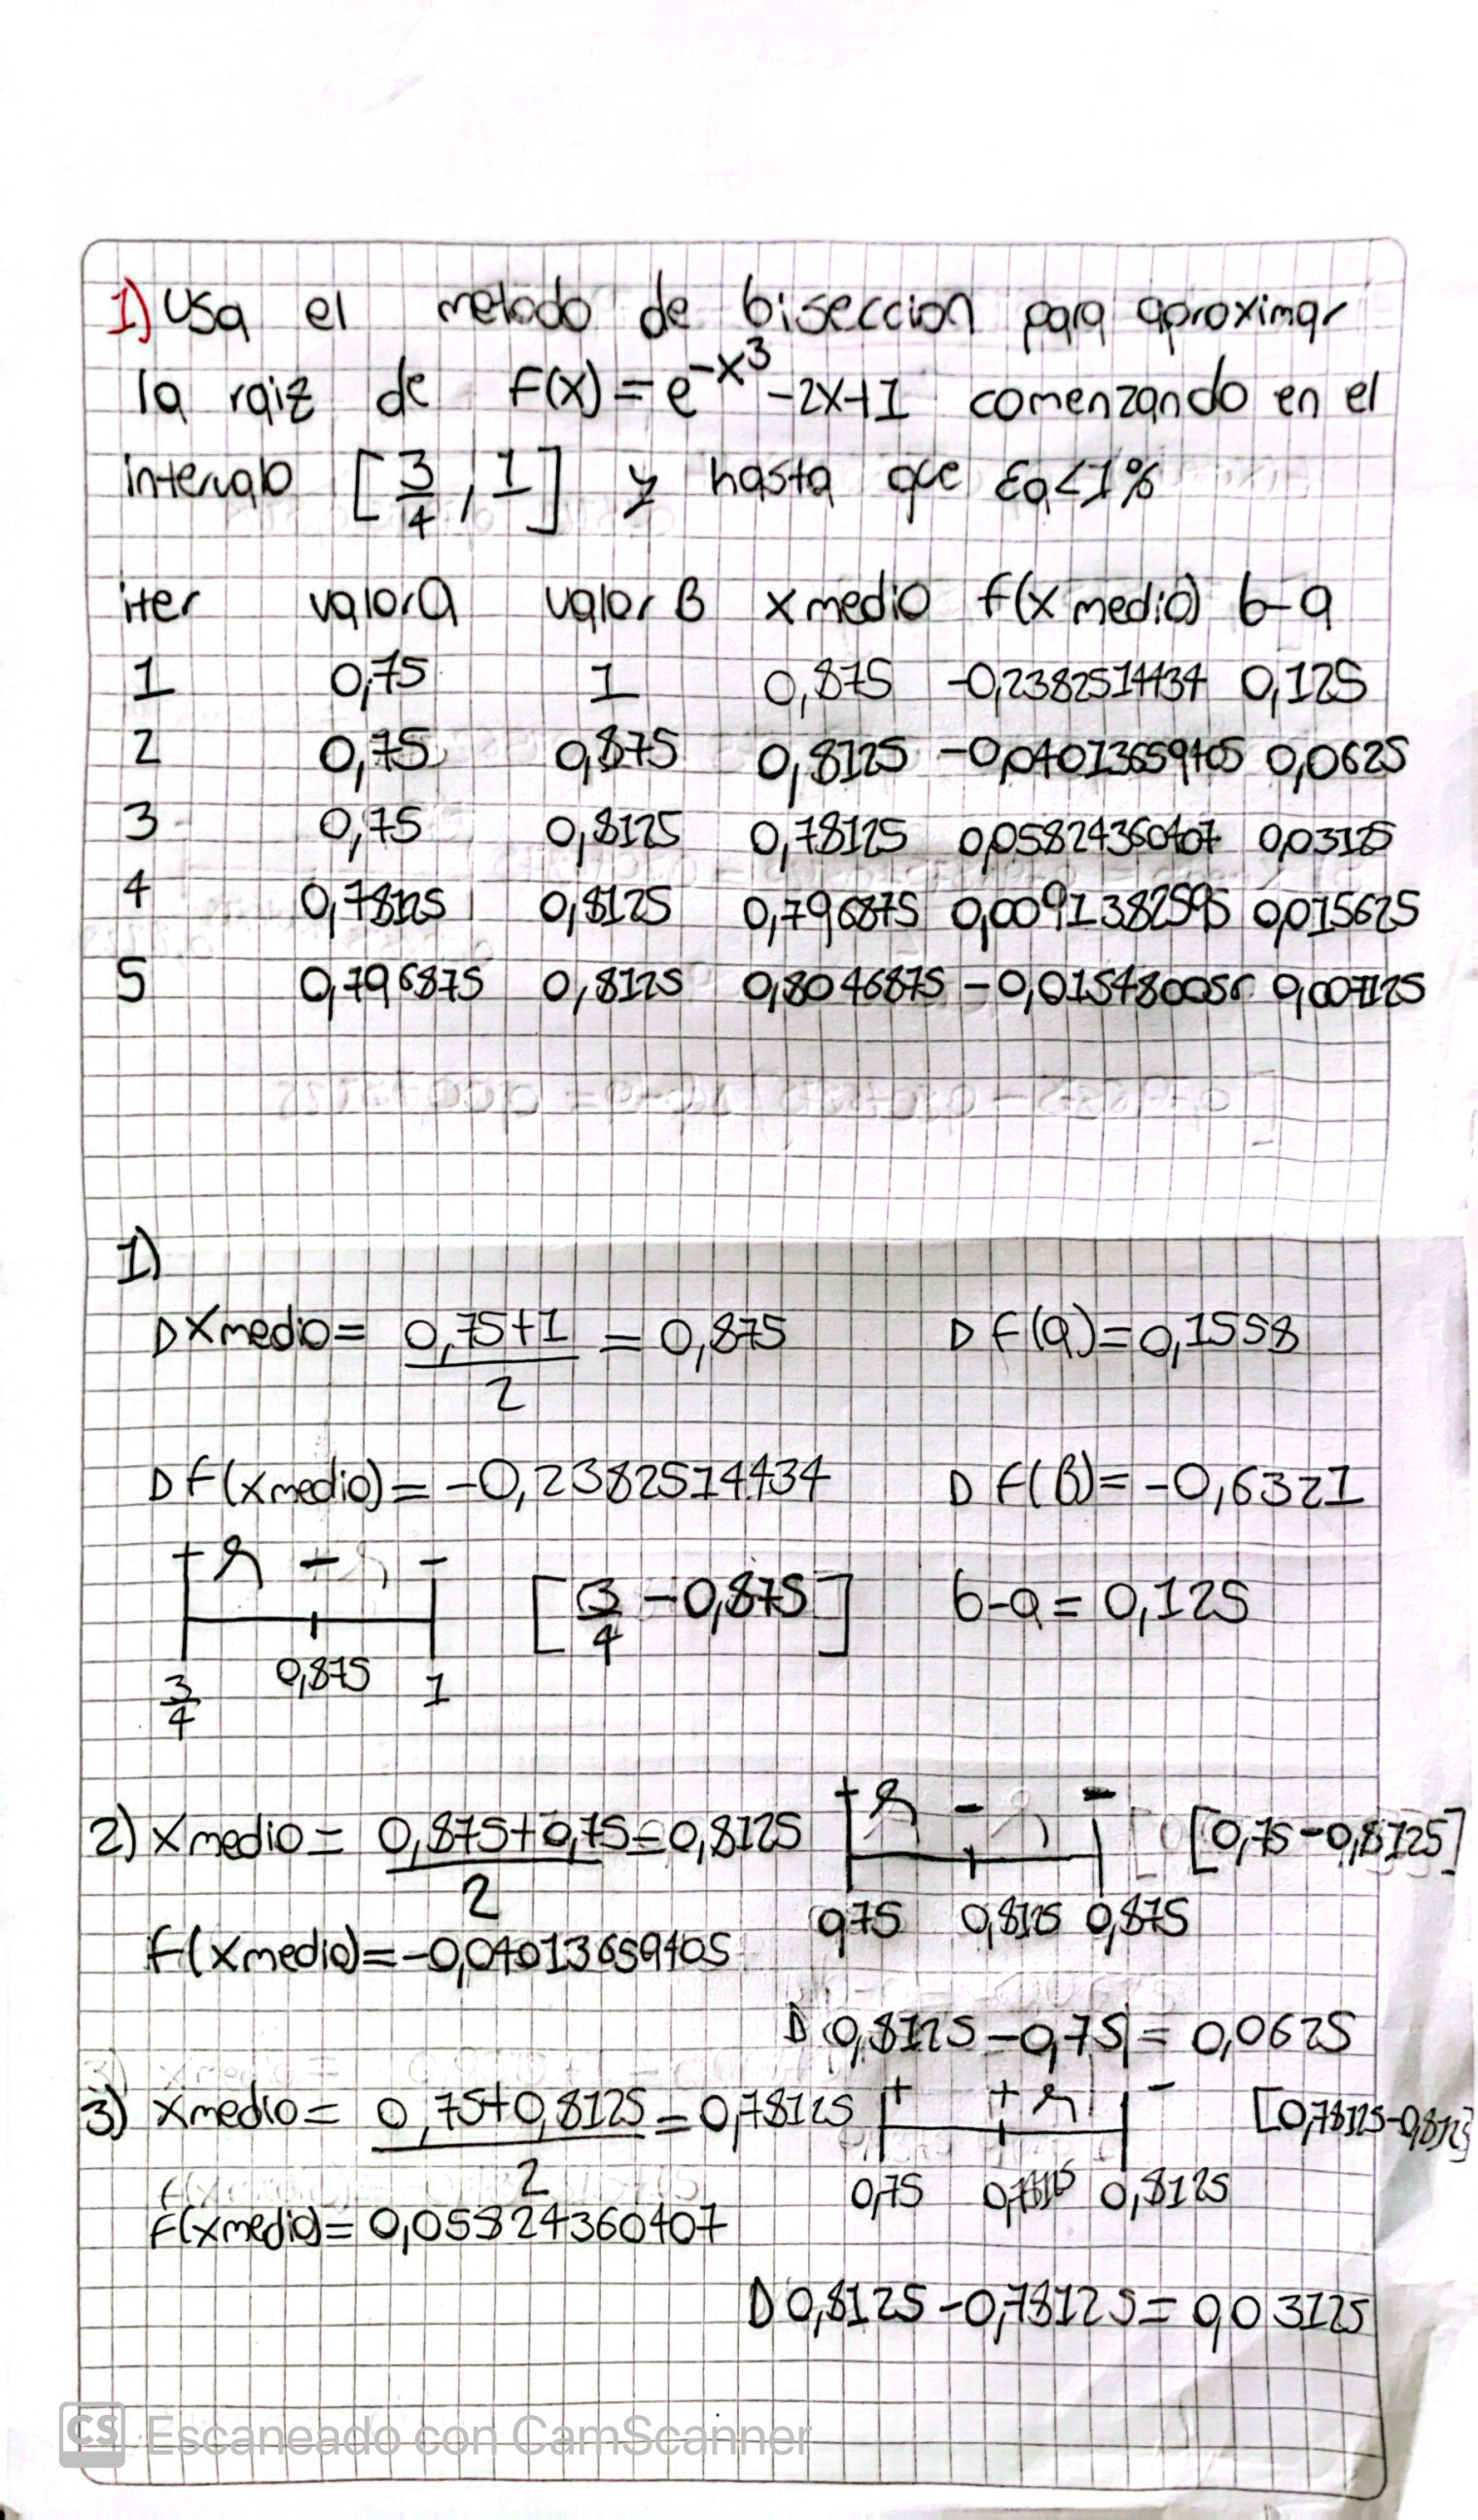 1) Usa el metodo de biseccion para aproximar
la raiz de f(x) = e^-x^3 -2x+1 comenzando en el
intervalo [3/4, 1] y hasta que εa<1%
iter valor a valor B x medio f(x medio) b-a
1 0,75 1 0,875 -0,2382514434 0,125
2 0,75 0,875 0,8125 -0,04013659405 0,0625
3 0,75 0,8125 0,78125 0,05824360407 0,03125
4 0,78125 0,8125 0,796875 0,0091382595 0,015625
5 0,796875 0,8125 0,8046875 -0,01548005
1)
D Xmedio = 0,75+1/2 = 0,875 D f(a)=0,1558
D f(xmedio) = -0,2382514434 D f(B)= -0,6321
+ - -
3/4 0,875 1 [3/4 - 0,875] b-a = 0,125
2) xmedio = 0,875+0,75/2 = 0,8125 + - - [0,75-0,8125]
0,75 0,8125 0,875
f(xmedio)=-0,04013659405
D 0,8125-0,75 = 0,0625
3) xmedio = 0,75+0,8125/2 = 0,78125 + + - [0,78125-0,8125]
0,75 0,78125 0,8125
f(xmedio)= 0,05824360407
D 0,8125-0,78125= 0,03125
CS Escaneado con CamScanner